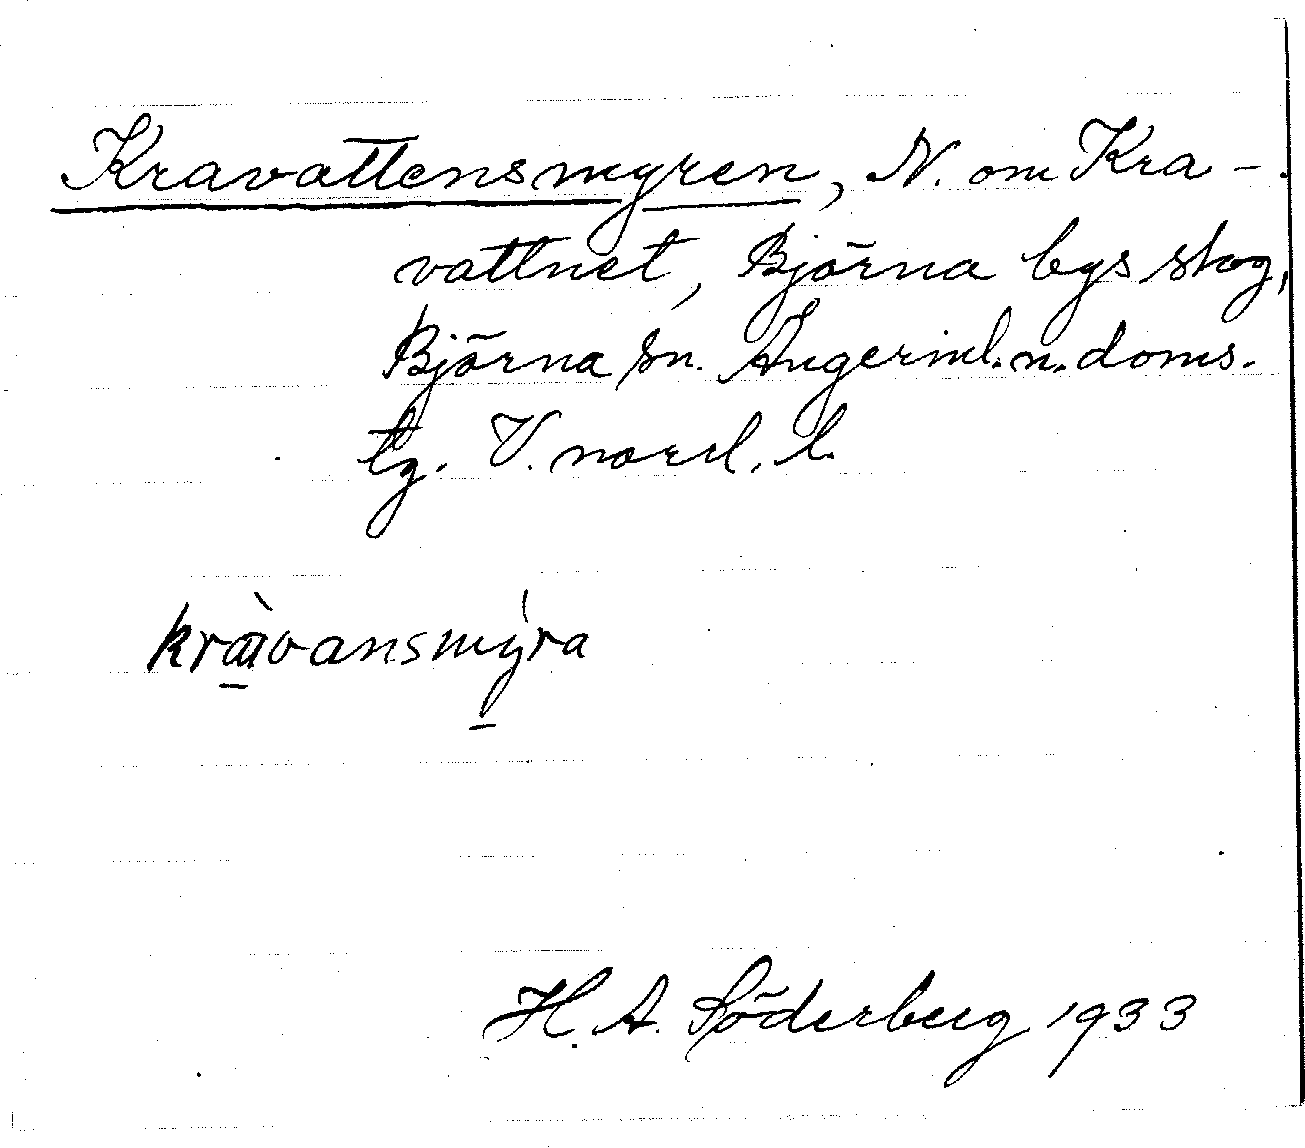 Kravattensmyren, N. om Kra-
vattnet, Björna bys skog,
Björna sn. Ångerml. n. doms.
tg. V. norrl. l.
kràvansmýra
H. A. Söderberg 1933